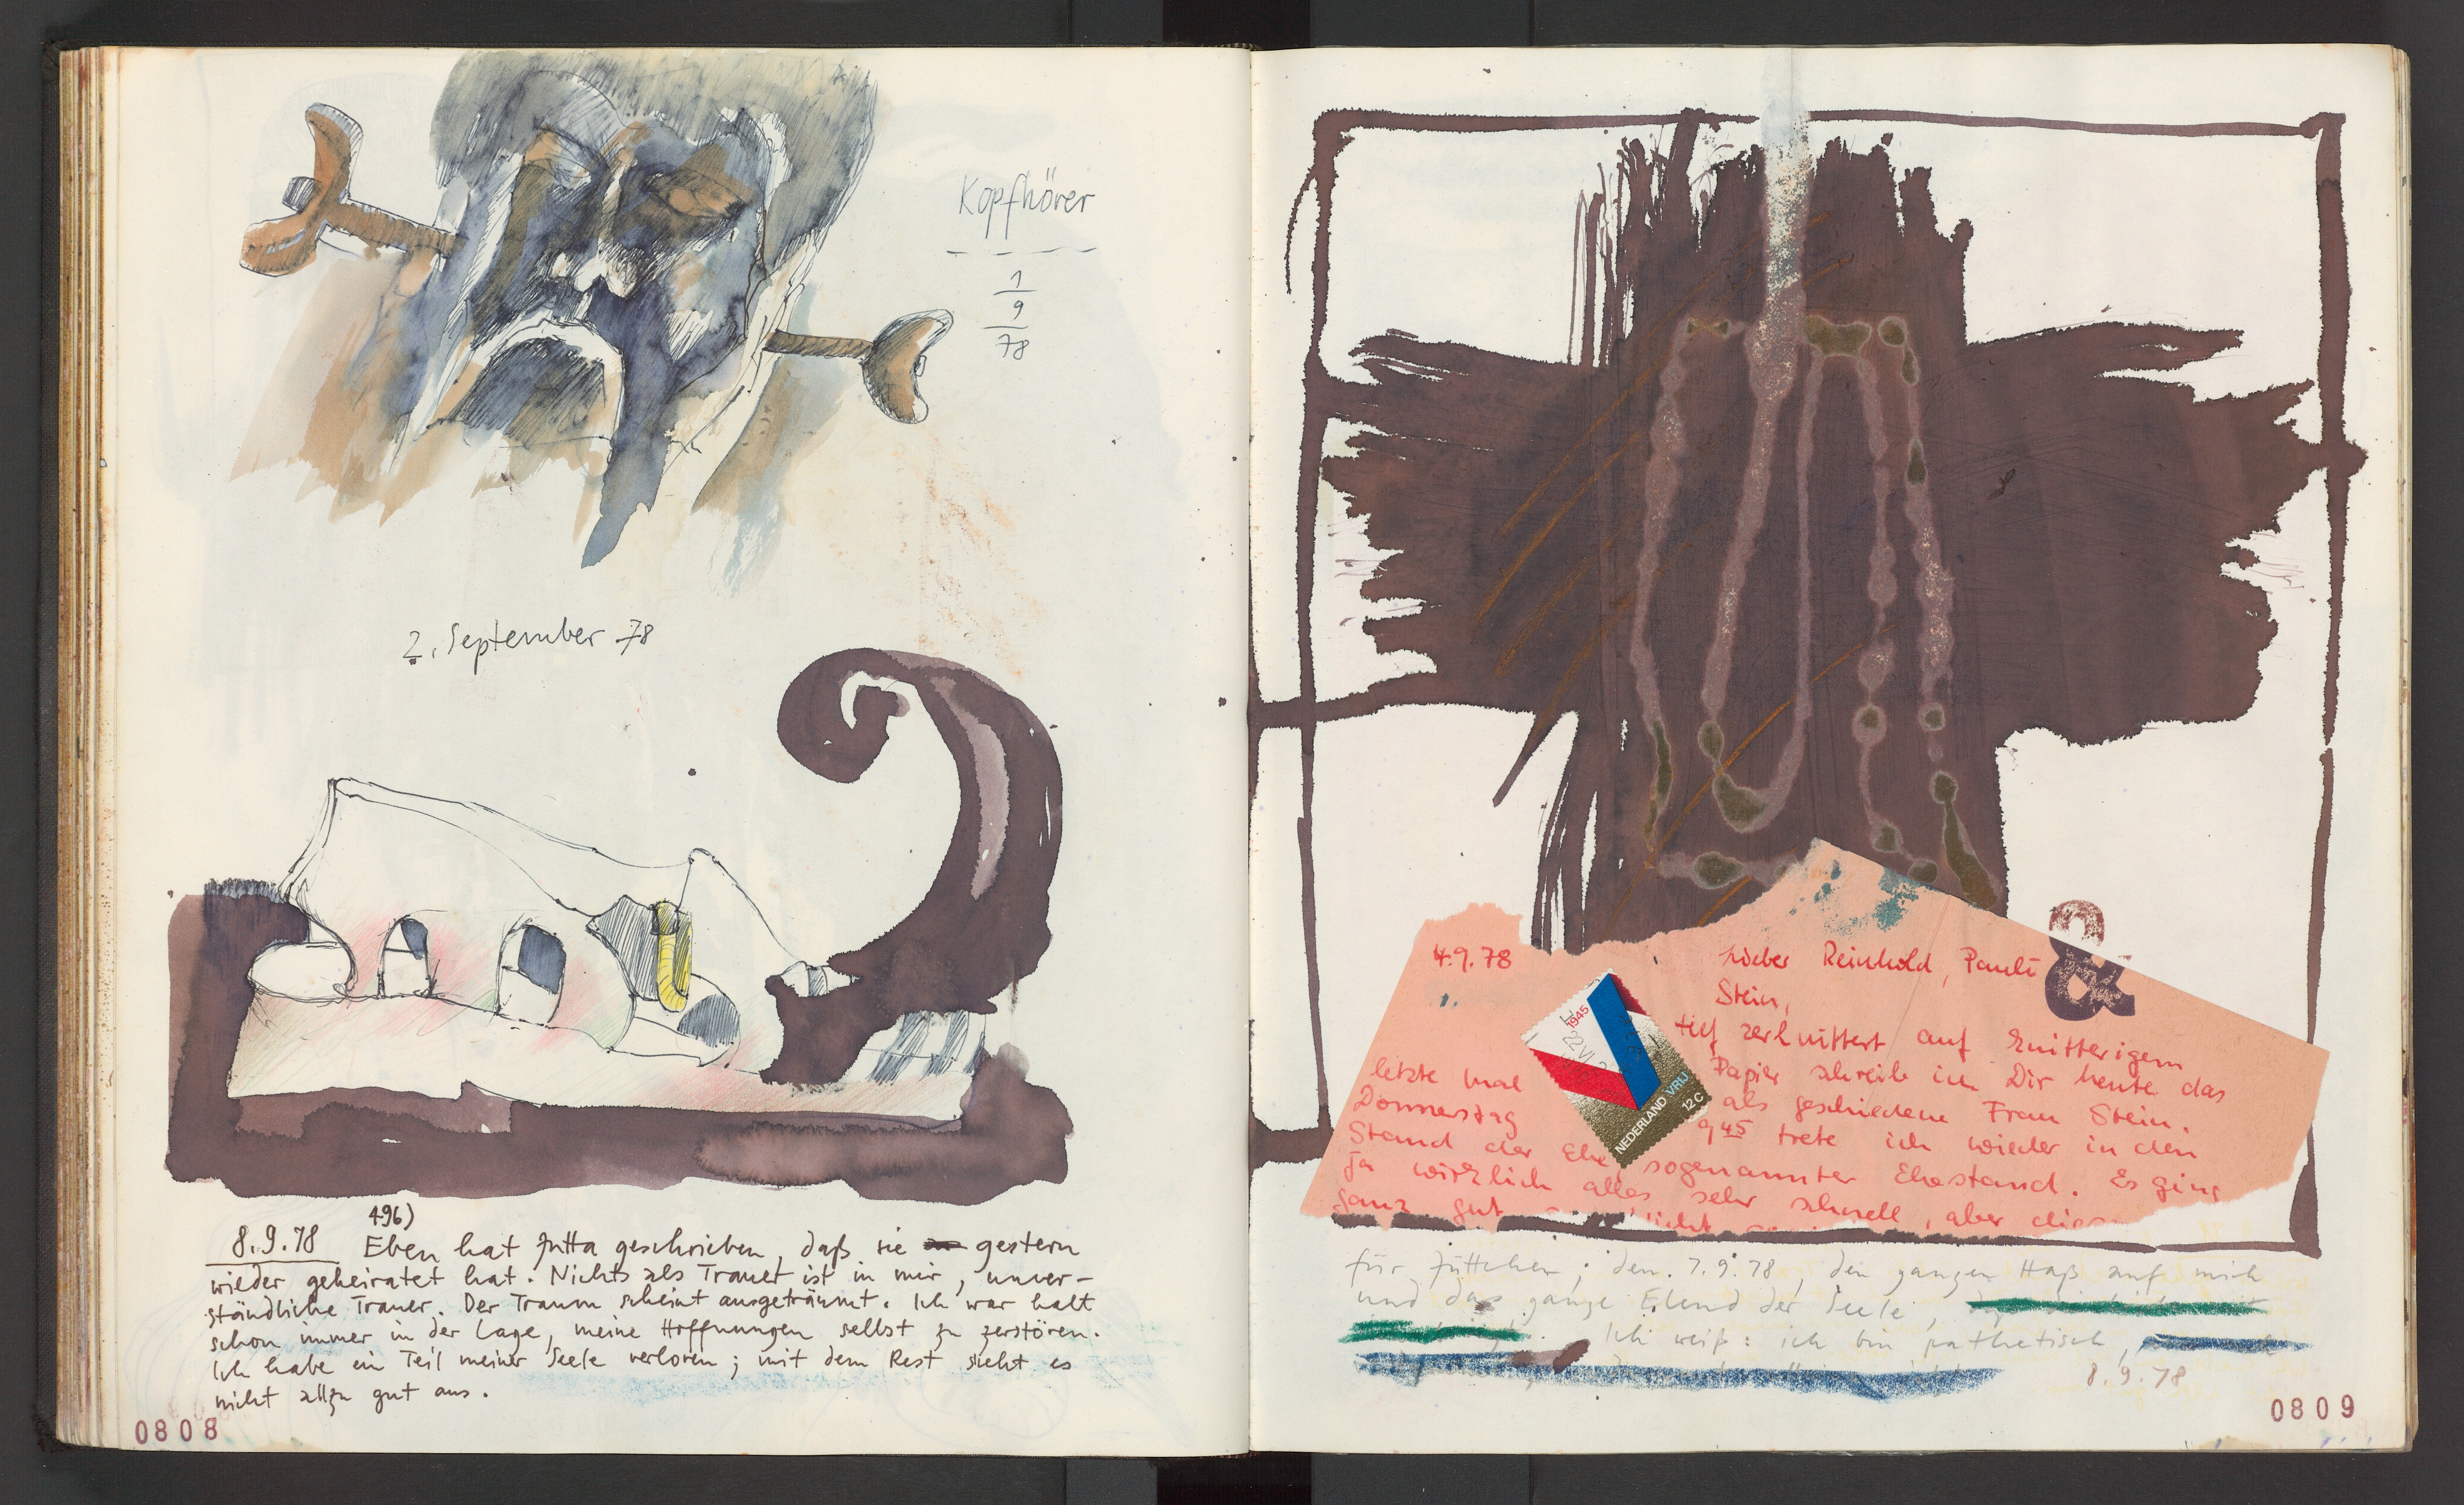 Kopfhörer
1
9
78
2. September 78
496)
8.9.78 Eben hat Jutta geschrieben, daß sie gestern
wieder geheiratet hat. Nichts als Trauer ist in mir, unver-
ständliche Trauer. Der Traum scheint ausgeträumt. Ich war halt
schon immer in der Lage, meine Hoffnungen selbst zu zerstören.
Ich habe ein Teil meiner Seele verloren; mit dem Rest sieht es
nicht allzu gut aus.
0808
&
4.9.78 Lieber Reinhold, Pauli
Stein,
tief zerknittert auf knitterigem
Papier schreib ich Dir heute das
letzte mal als geschiedene Frau Stein.
Donnerstag 9 45 trete ich wieder in den
Stand der Ehe sogenannter Ehestand. Es ging
ja wirklich alles sehr schnell, aber
ganz gut
1945
22 VI
NEDERLAND VRIJ
12c
für Juttchen; den 7.9.78, den ganzen Haß auf mich
und das ganze Elend der Seele,
Ich weiß: ich bin pathetisch,
8.9.78
0809